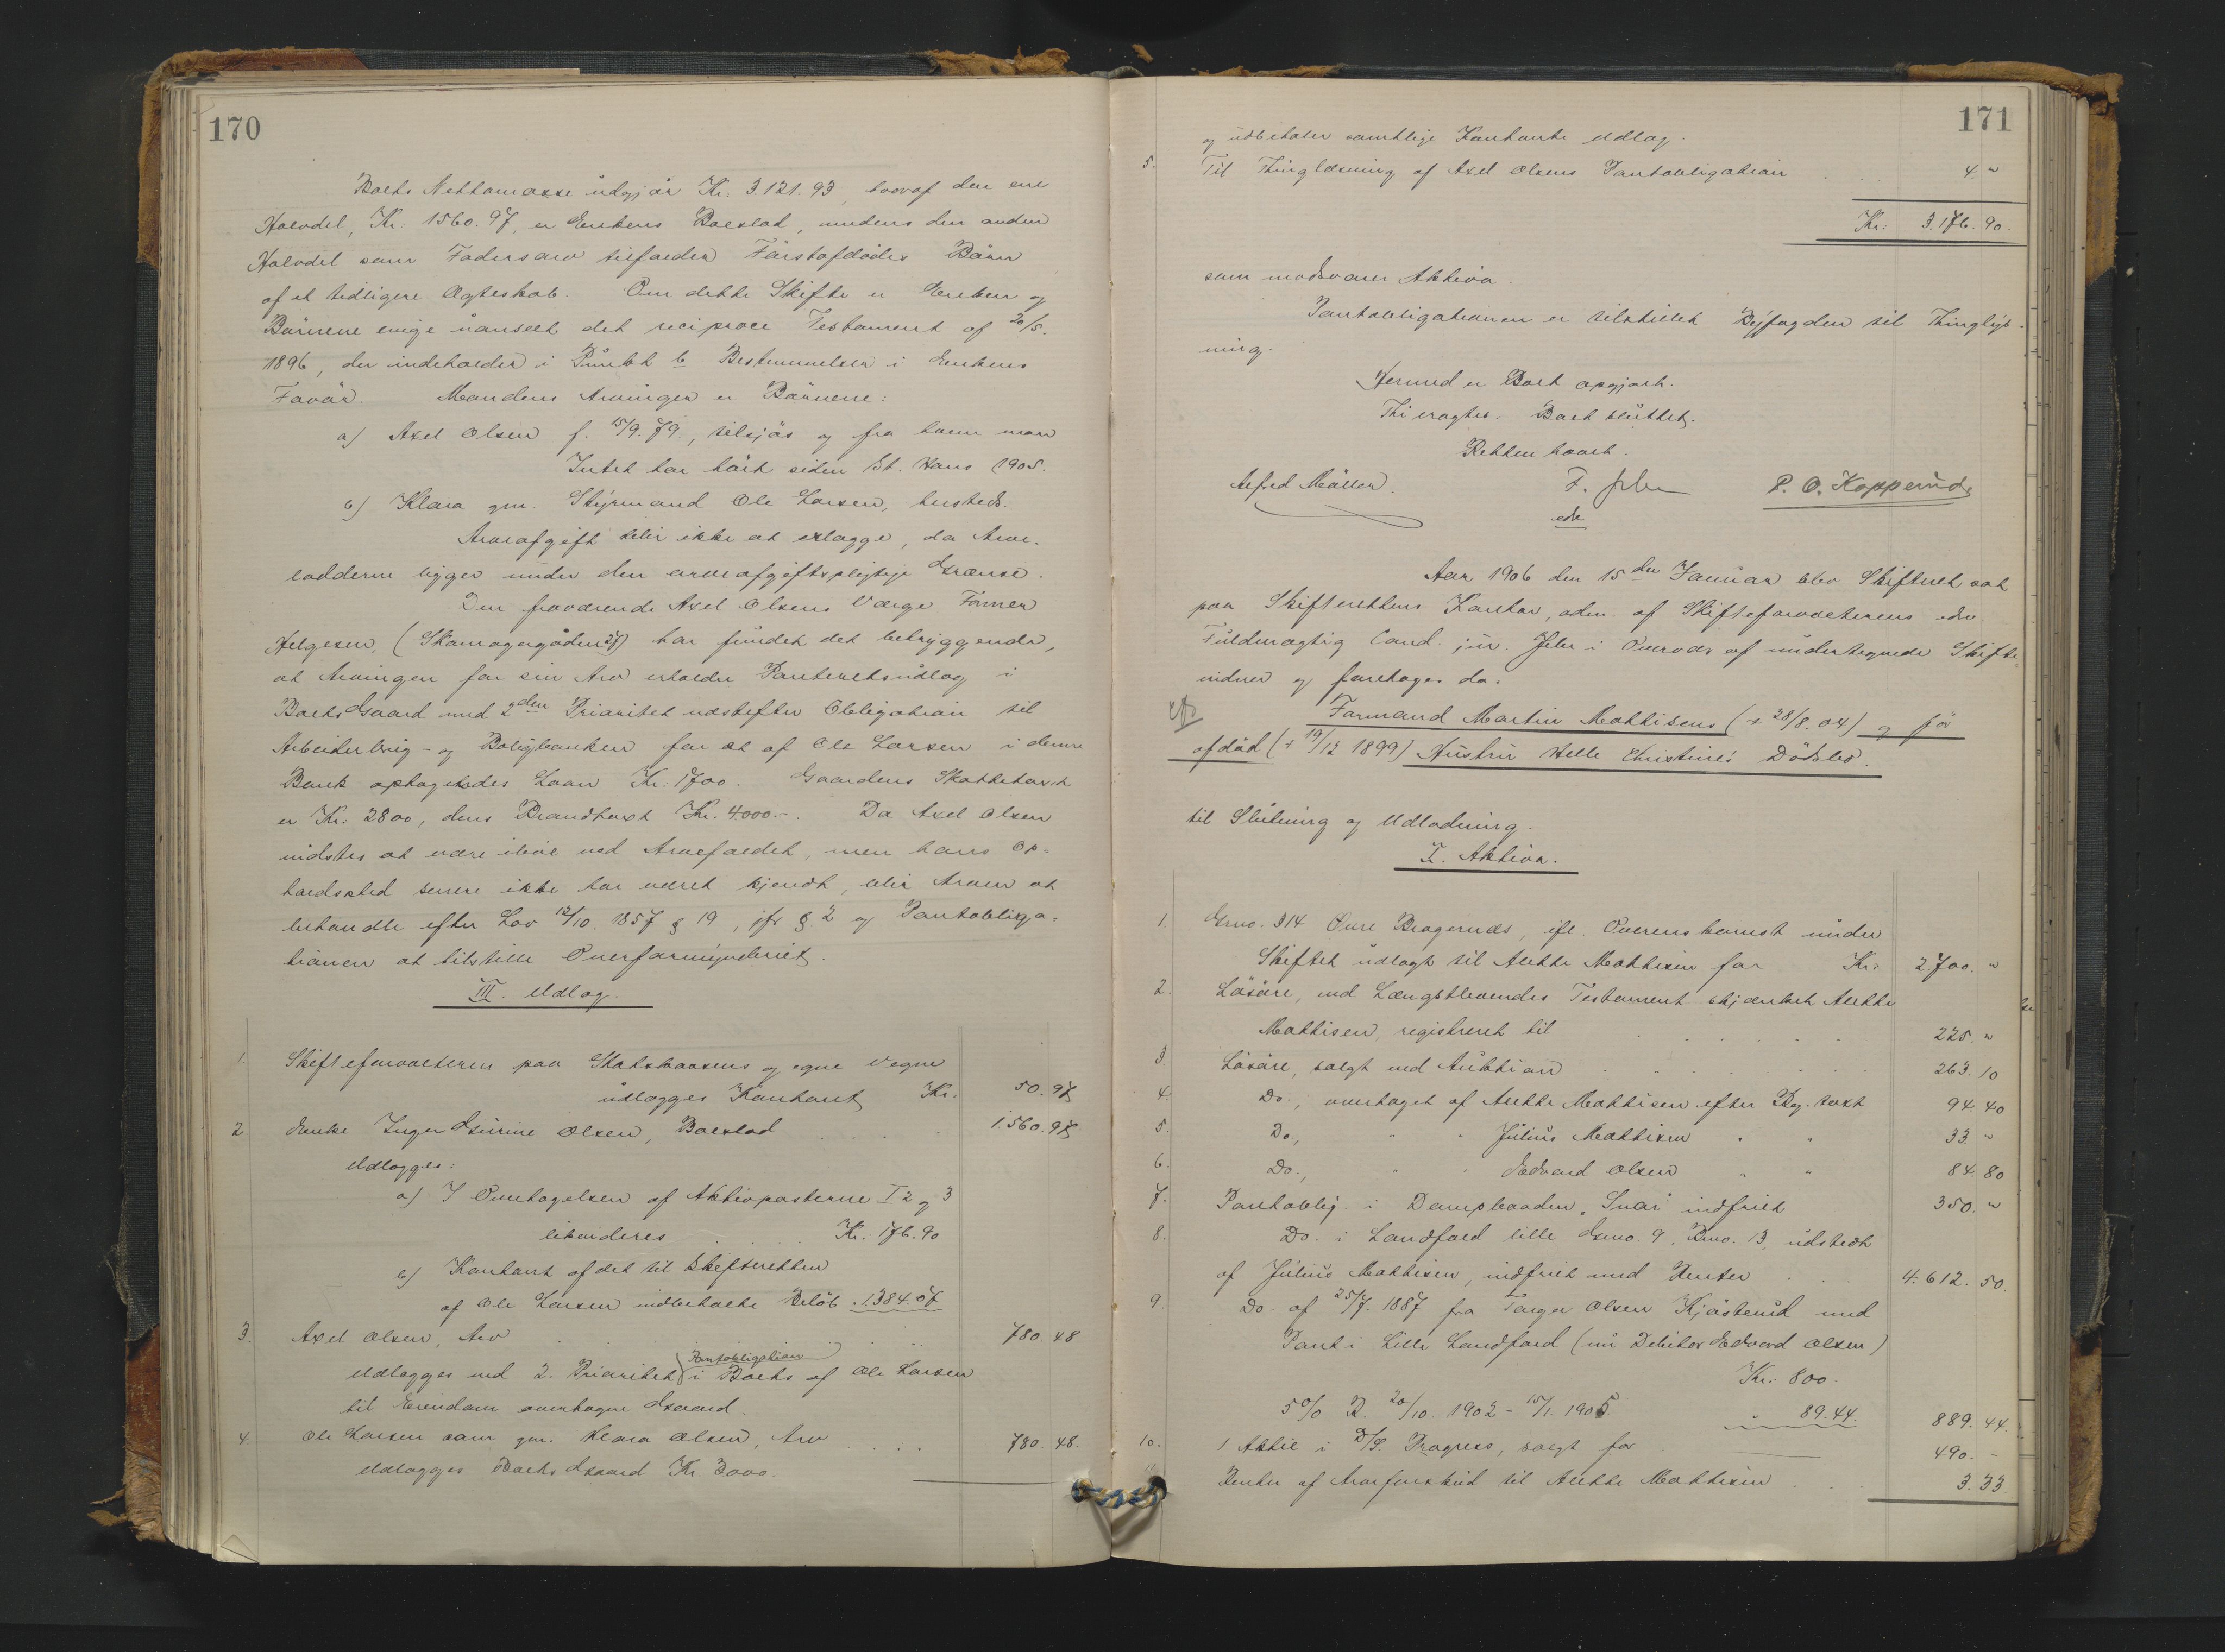 170
Boets Nettomasse udgjør Kr. 3.121.93, hvoraf den ene
Halvdel, Kr. 1560.97, er Enkens Boeslod, medens den anden
Halvdel som Fadersarv tilfalder Førstafdødes Børn
af et tidligere Ægteskab. Om dette Skifte er Enken og
Børnene enige uanseet det reciproce Testament af 20/5.
1896, der indeholder i Punkt b Bestemmelser i Enkens
Favør. Mandens Arvinger er Børnene:
a) Axel Olsen f. 15/9.79., tilsjøs og fra hvem man
Intet har hørt siden St. Hans 1905.
b) Klara gm. Styrmand Ole Larsen, hersteds.
Arveafgift blir ikke at erlægge, da Arve-
lodderne ligger under den arveafgiftspligtige Grænse.
Den fraværende Axel Olsens Værge Former
Helgesen, (Skomagergaden 27) har fundet det betryggende,
at Arvingen for sin Arv erholder Panteretsudlæg i
Boets Gaard med 2den Prioritet næstefter Obligation til
Arbeiderbrug- og Boligbanken for et af Ole Larsen i denne
Bank optagendes Laan Kr. 1700. Gaardens Skattetaxt
er Kr. 2800, dens Brandtaxt Kr. 4.000.-. Da Axel Olsen
vidstes at være ilive ved Arvefaldet, men hans Op-
holdssted senere ikke har været kjendt, blir Arven at
behandle efter Lov 12/10. 1857 § 19, jfr. § 2 og Pantobliga-
tionen at tilstille Overformynderiet.
III. Udlæg.
1. Skifteforvalteren paa Statskassens og egne Vegne
udlægges Kontant Kr. 50.97
2. Enke Inger Gurine Olsen, Boeslod 1.560.97
Udlægges:
a) I Overtagelsen af Aktivposterne I 2 og 3
likvideres Kr. 176.90
b) Kontant af det til Skifteretten
af Ole Larsen indbetalte Beløb " 1384.07
3. Axel Olsen, Arv 780.48
Pantobligation
Udlægges ved 2. Prioritet i Boets af Ole Larsen
til Eiendom overtagne Gaard.
4. Ole Larsen som gm. Klara Olsen, Arv 780.48.
Udlægges Boets Gaard Kr. 3000.
171
og udbetaler samtlige Kontante Udlæg.
5. Til Thinglæsning af Axel Olsens Pantobligation 4. "
Kr. 3.176.90.
som modsvarer Aktiva.
Pantobligationen er tilstillet Byfogden til Thinglys-
ning.
Hermed er Boet opgjort.
Thi eragtes: Boet sluttet.
Retten hævet.
Alfred Møller. P. O. Kopperud
edv
Aar 1906 den 15den Januar blev Skifteret sat
paa Skifterettens Kontor, adm. af Skifteforvalterens edsv
Fuldmægtig Cand. jur. i Overvær af undertegnede Skifte-
vidner og foretoges da:
Formand Martin Mathisens (+ 28/8.04) og før
afdød (+ 19/12 1899) Hustru Helle Christine's Dødsbo.
til Slutning og Udlodning.
I. Aktiva.
1. Grno. 314 Øvre Bragernæs, ifl. Overenskomst under
Skiftet udlagt til Alette Mathisen for Kr: 2.700. "
2. Løsøre, ved Længstlevendes Testament skjænket Alette
Mathisen, registreret til 225. "
3. Løsøre, solgt ved Auktion 263.10
4. Do., overtaget af Alette Mathisen efter Rg. taxt 94.40
5. Do., " " Julius Mathisen " " 33. "
6. Do., " " Edvard Olsen " " 84.80
7. Pantoblig. i Dampbaaden "Snar" indfriet 350. "
8. Do. i Landfald lille Grno. 9, Brno. 13, udstedt
af Julius Mathisen, indfriet med Renter 4.612.50.
9. Do. af 25/7. 1887 fra Torger Olsen Kjøsterud med
Pant i Lille Landfald (nu Debitor Edvard Olsen)
Kr. 800.
5 0/0 R. 20/10. 1902 - 15/1. 1905 " 89.44. 889.44.
10. 1 Aktie i D/S. Progress, solgt for 490. -
11. Renter af Arveforskud til Alette Mathisen 3.33